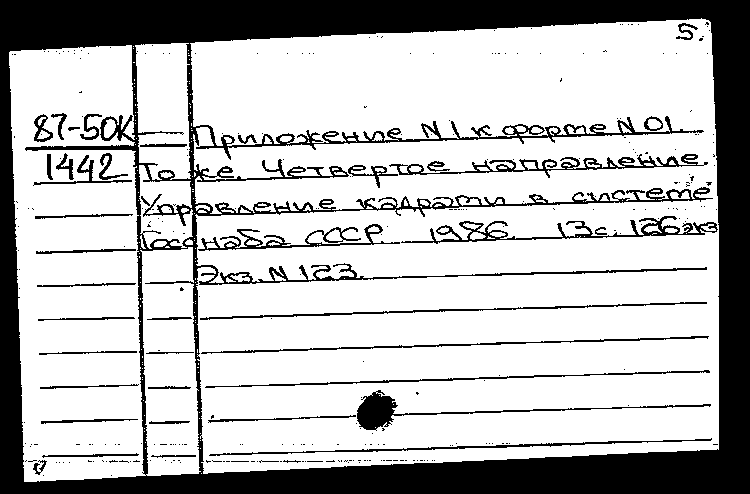 5.
87-50К — Приложение N1 к форме N01.
1442 То же. Четвертое направление.
Управление кадрами в системе
Госснаба СССР. 1986. 13с. 126экз
Экз. N 123.